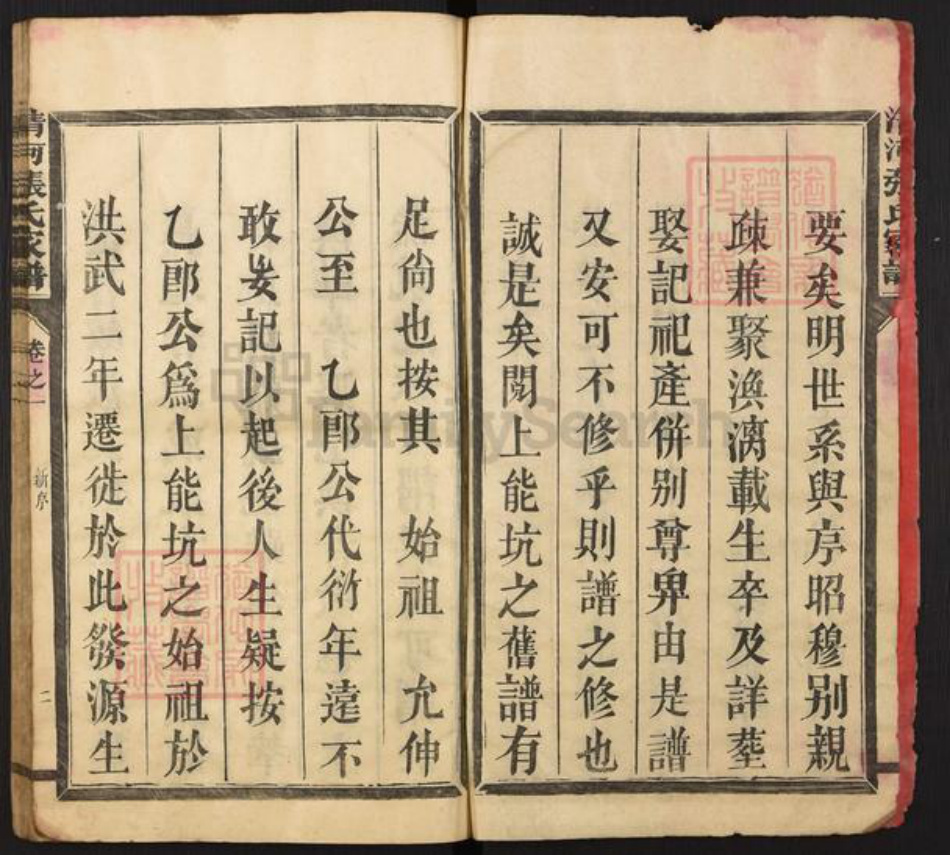 要矣明世系與序昭穆别親
疎兼聚渙漓載生卒及詳塟
娶記祀產併别尊卑由是譜
又安可不修乎則譜之修也
誠是矣閱上能坑之舊譜有
足尙也按其 始祖 允伸
公至 乙郎公代衍年遠不
敢妄記以起後人生疑按
乙郎公爲上能坑之始祖於
洪武二年遷徙於此發源生
清河張氏家譜 卷之一 新序 二
清河張氏家譜
FamilySearch